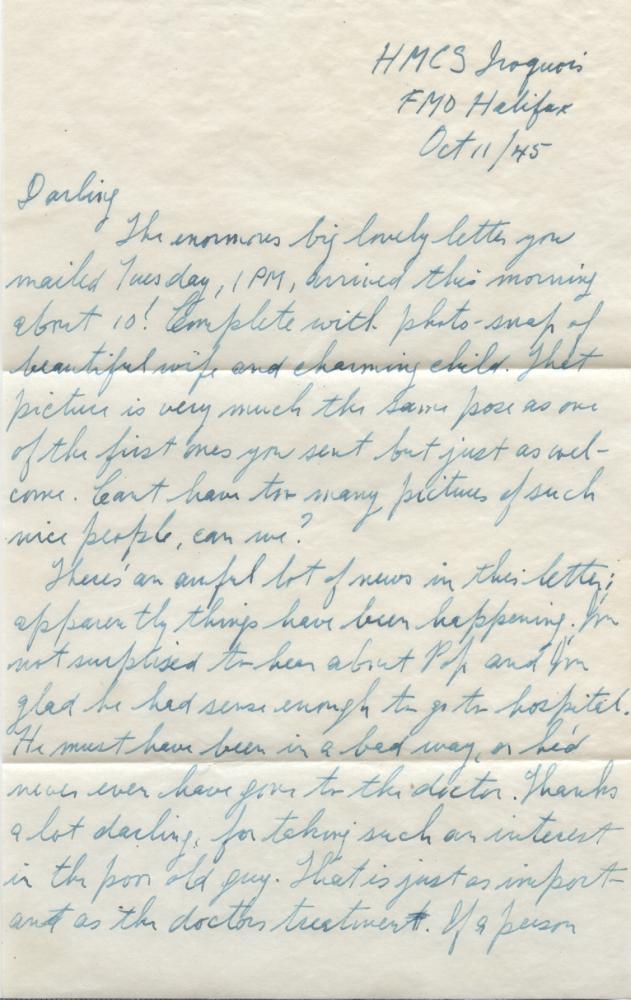 HMCS Iroquois
FMO Halifax
Oct 11/45
Darling
The enormous big lovely letter you
mailed Tuesday, 1 PM, arrived this morning
about 10! Complete with photo-snap of
beautiful wife and charming child. That
picture is very much the same pose as one
of the first ones you sent but just as wel-
come. Can't have too many pictures of such
nice people, can we?
There's an awful lot of news in this letter;
apparently things have been happening. I'm
not surprised to hear about Pop and I'm
glad he had sense enough to go to hospital.
He must have been in a bad way, or he'd
never ever have gone to the doctor. Thanks
a lot darling, for taking such an interest
in the poor old guy. That is just as import-
ant as the doctors treatment. If a person